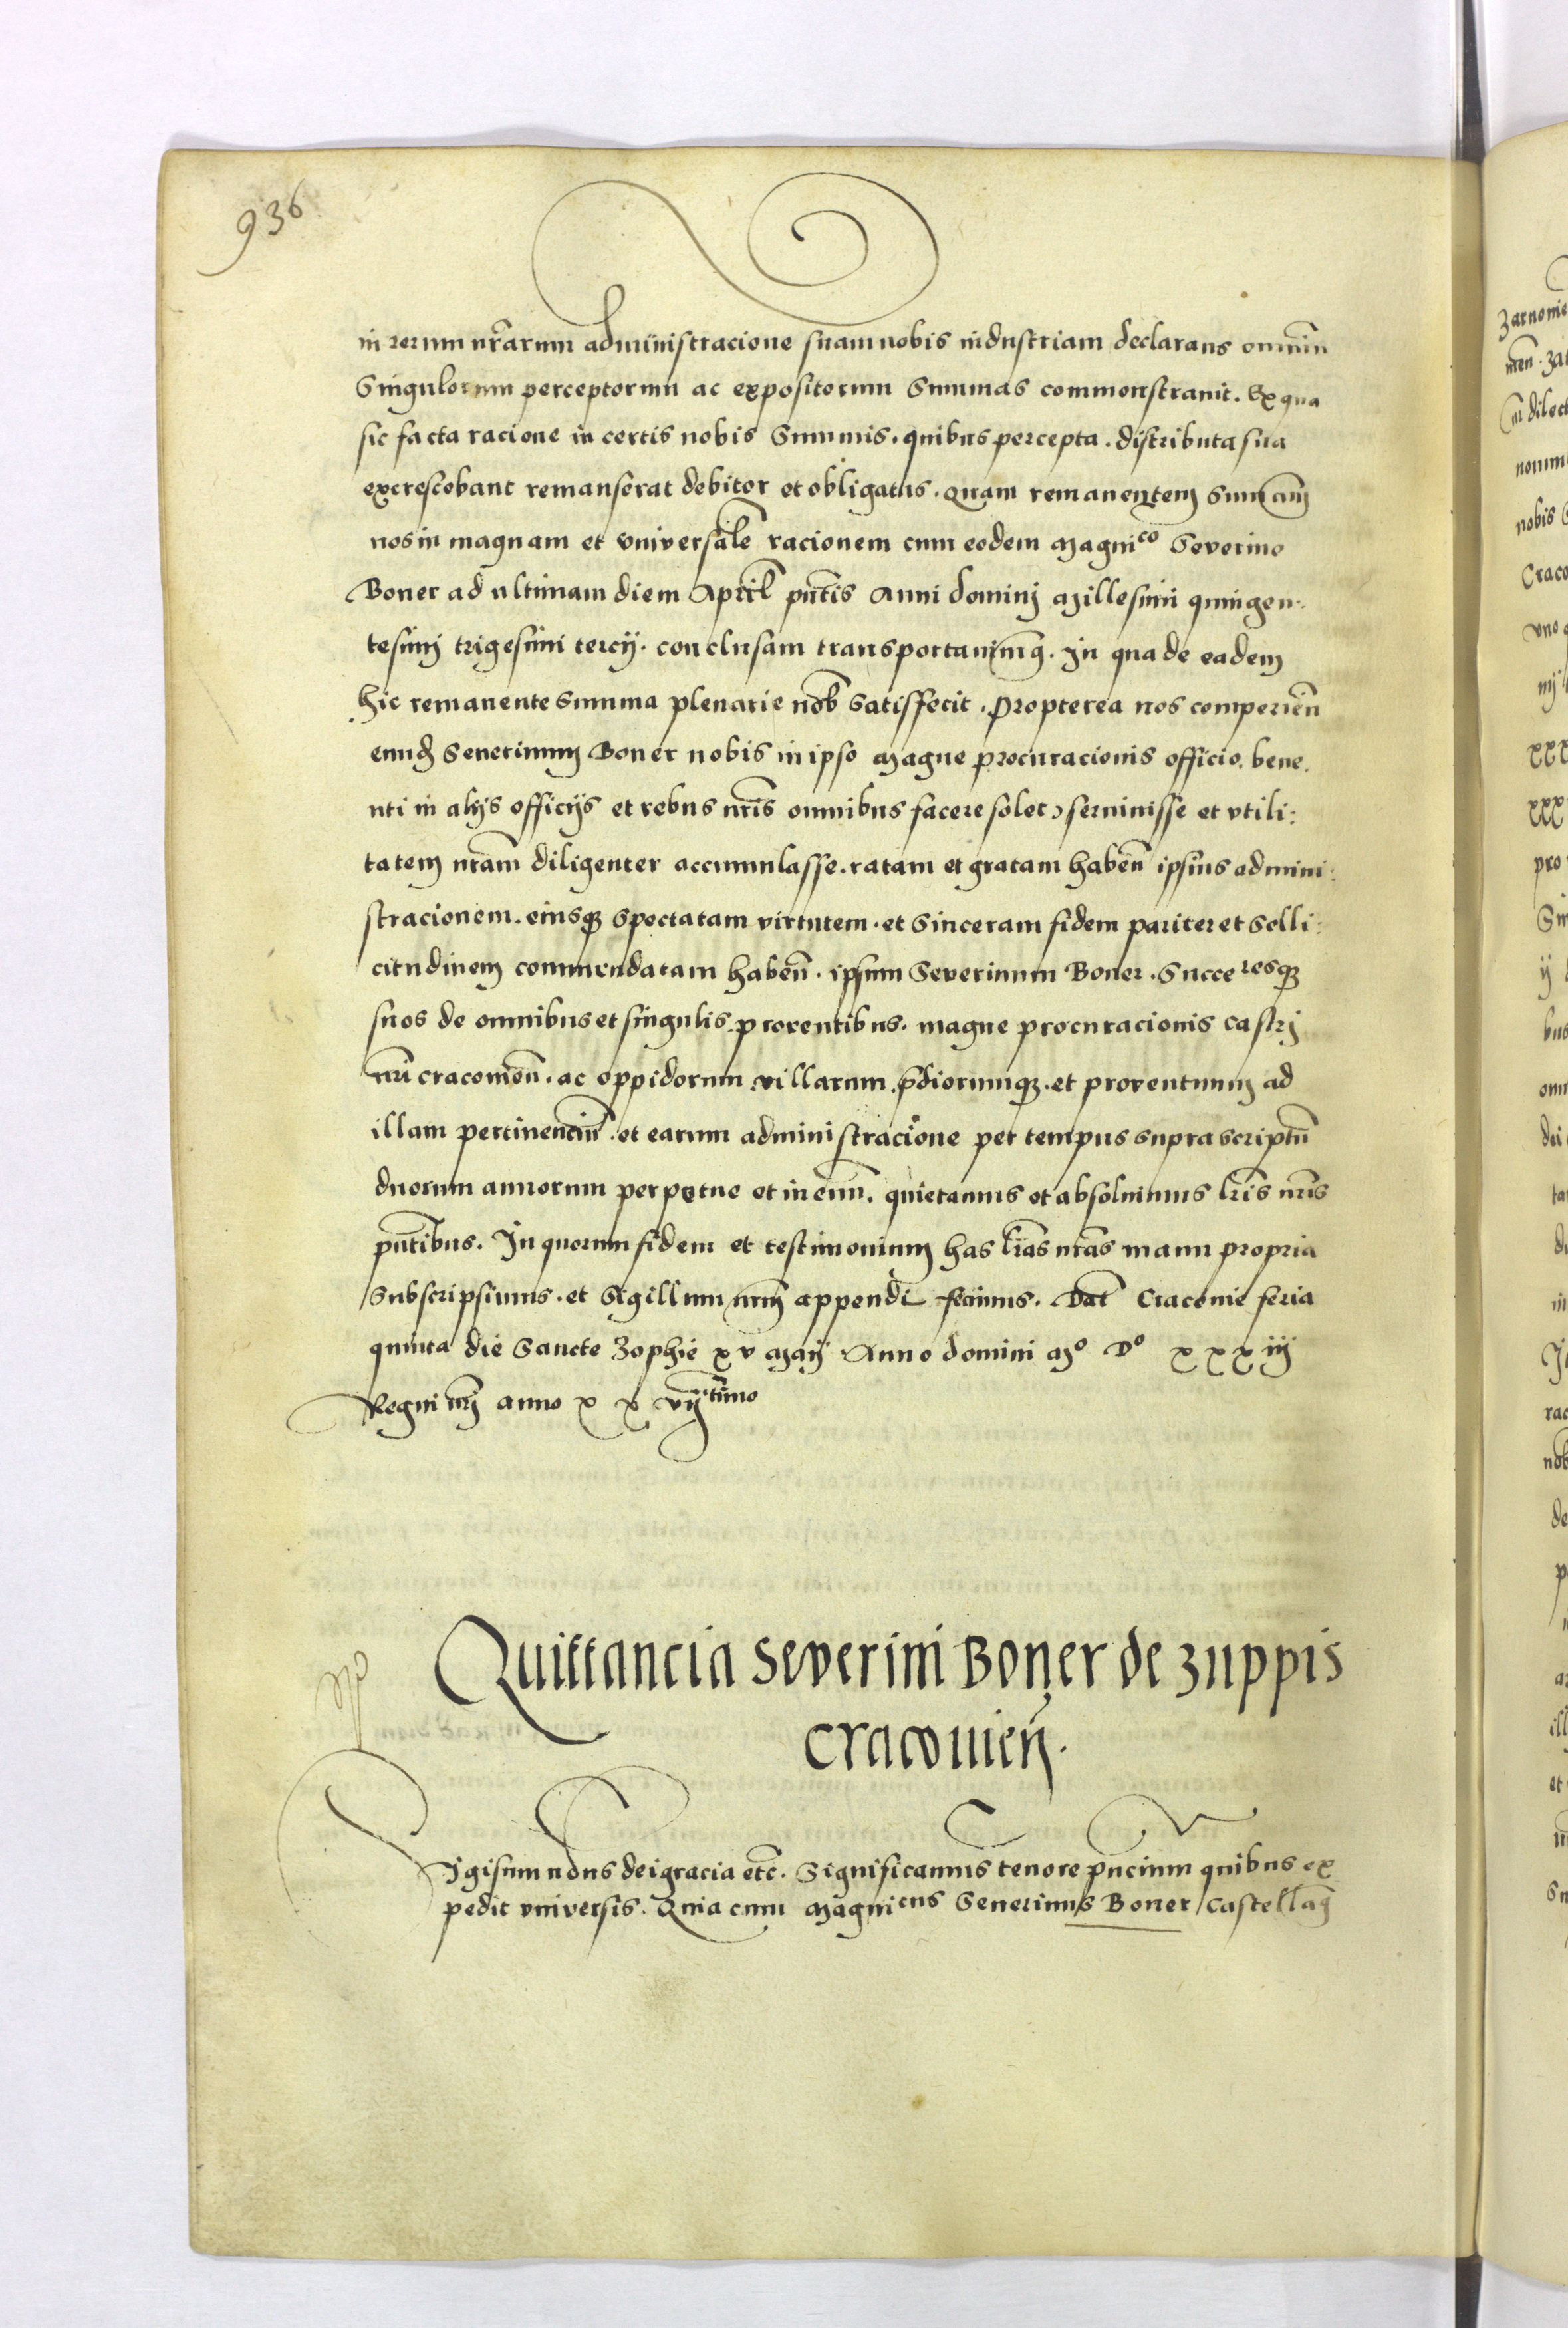 936
in rerum nr̃arum administracione suam nobis industriam declarans omniũ
Singulorum perceptorum ac expositorum Summas commonstrauit. Ex qua
sic facta racione in certis nobis Summis. quibus percepta. distributa sua
excrescebant remanserat debitor et obligatus. Quam remanentem Summam
nos in magnam et vniversalẽ racionem cum eodem Magnico Severino
Boner ad vltimam diem Aprił pñtis Anni dominj Millesimi quingen:
tesimj trigesimi tercij. conclusam transportauimꝰ. In qua de eadem
hic remanente Summa plenarie nob̃ Satisffecit. Propterea nos comperieñ
eundẽ Seuerinum Boner nobis in ipso Magne procuracionis officio. bene.
vti in alijs officijs et rebus nr̃is omnibus facere solet, seruiuisse et vtili:
tatem nr̃am diligenter accumulasse. ratam et gratam habeñ ipsius admini:
stracionem. eiusqꝫ Spectatam virtutem. et Sinceram fidem pariter et Solli:
citudinem commendatam habeñ. ipsum Severinum Boner. Succeresqꝫ
suos de omnibus et singulis proventibus. magne procuracionis castrj
nr̃i cracouieñ. ac oppidorum villarum. p̃diorumqꝫ. et proventuum ad
illam pertinenciũ. et earum administracione per tempus suprascriptũ
duorum annorum perpetue et in euũ. quietamus et absoluimus lr̃is nr̃is
pñtibus. In quorum fidem et testimonium has lr̃as nr̃as manu propria
Subscripsimus. et Sigillum nr̃m appendi fecimus. Dat̃ Cracouie feria
quinta die Sancte Zophie xv Maij Anno domini Mo Do xxxiij
Regni nr̃j anno x x vijtimo
Quittancia Severini Boner de zuppis
cracouieñ.
Sigismundus dei gracia etc̃. Significamus tenore pñcium quibus ex
pedit vniversis. Quia cum Magnicus Seuerinus Boner Castellaꝰ